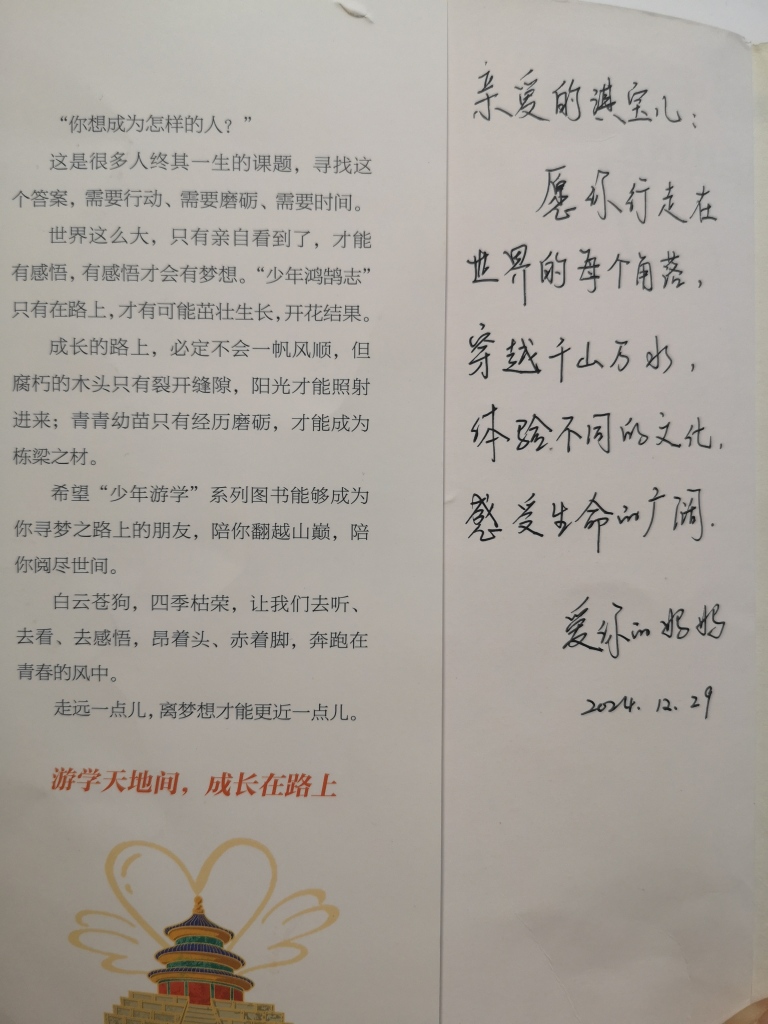 “你想成为怎样的人？”
这是很多人终其一生的课题，寻找这
个答案，需要行动、需要磨砺、需要时间。
世界这么大，只有亲自看到了，才能
有感悟，有感悟才会有梦想。“少年鸿鹄志”
只有在路上，才有可能茁壮生长，开花结果。
成长的路上，必定不会一帆风顺，但
腐朽的木头只有裂开缝隙，阳光才能照射
进来；青青幼苗只有经历磨砺，才能成为
栋梁之材。
希望“少年游学”系列图书能够成为
你寻梦之路上的朋友，陪你翻越山巅，陪
你阅尽世间。
白云苍狗，四季枯荣，让我们去听、
去看、去感悟，昂着头、赤着脚，奔跑在
青春的风中。
走远一点儿，离梦想才能更近一点儿。
游学天地间，成长在路上
亲爱的淇宝儿：
愿你行走在
世界的每个角落，
穿越千山万水，
体验不同的文化，
感受生命的广阔.
爱你的妈妈
2024.12.29